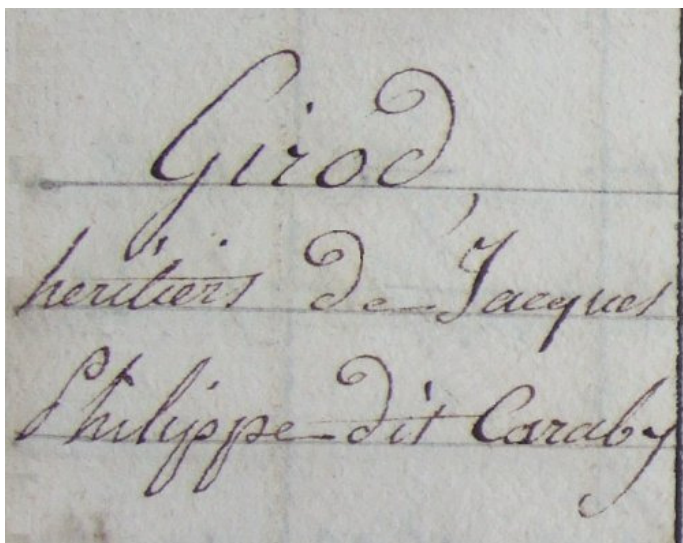 Girod,
heritiers de Jacques
Philippe dit Caraby